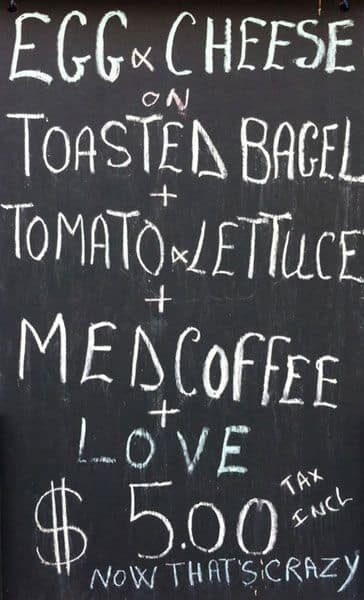 EGG & CHEESE
ON
TOASTED BAGEL
+
TOMATO & LETTUCE
+
MED COFFEE
+
LOVE
$ 5.00 TAX INCL
NOW THAT'S CRAZY